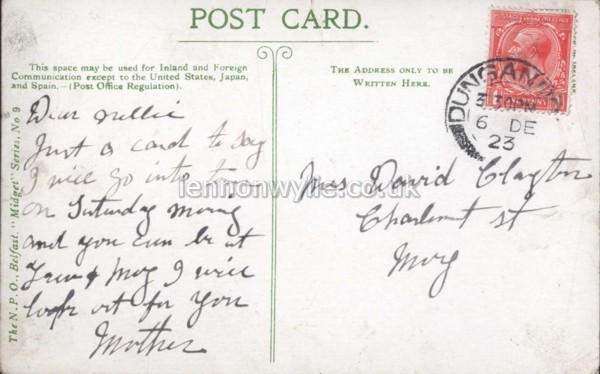 POST CARD.
This space may be used for Inland and Foreign
Communication except to the United States, Japan,
and Spain.—(Post Office Regulation).
Dear Nellie
Just a card to say
I will go into
on Saturday morning
and you can be at
I will
look out for you
Mother
The N.P.O., Belfast. "Midget" Series, No 9
The Address only to be
Written Here.
DUNGANNON
3 30PM
6 DE
23
Mrs David Clayton
Charlemont st
Moy
lennonwylie.co.uk